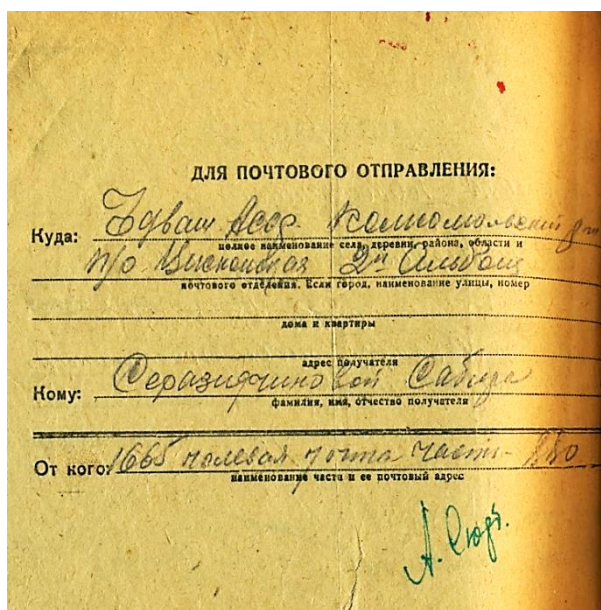 ДЛЯ ПОЧТОВОГО ОТПРАВЛЕНИЯ:
Куда: Асср Комсомольский
полное наименование села, деревни, района, области и
п/о
почтового отделения. Если город, наименование улицы, номер
дома и квартиры
адрес получателя
Кому: Серазидиновой
фамилия, имя, отчество получателя
От кого: 1665 полевая почта часть
наименование части и ее почтовый адрес
А. Сюдт.